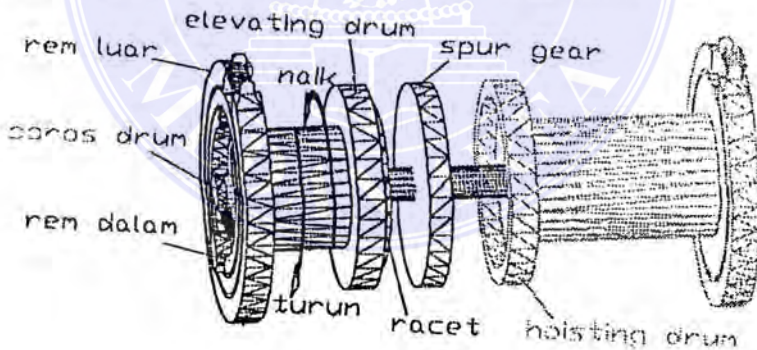 elevating drum
rem luar
spur gear
naik
poros drum
rem dalam
turun
racet
hoisting drum